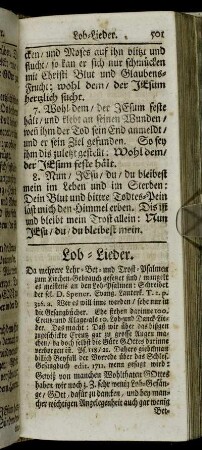 Lob-Lieder. 501
cken/ und Moses auf ihn blitzt und
flucht/ so kan er sich nur schmücken
mit Christi Blut und Glaubens-
Frucht; wohl dem/ der JEsum
hertzlich sucht.
7. Wohl dem/ der JEsum feste
hält/ und klebt an seinen Wunden/
wen ihm der Tod sein End anmeldt/
und er sein Ziel gefunden. So sey
ihm diß zuletzt gestellt: Wohl dem/
der JEsum feste hält.
8. Nun/ JEsu/ du/ du bleibest
mein im Leben und im Sterben:
Dein Blut und bittre Todtes-Pein
läst mich den Himmel erben. Diß ist
und bleibt mein Trost allein: Nun
JEsu/ du/ du bleibest mein.
Lob-Lieder.
Da mehrere Lehr- Bet- und Trost-Psalmen
zum Kirchen-Gebrauch gesetzet sind/ mangelt
es meistens an den Lob-Psalmen: Schreibet
der sel. D. Spener. Evang. Lauterk. T. 1. p.
316. a. Wer a) will inne werden/ sehe nur in
die Gesangbücher. Ehe stehen darinne 100.
Creutz- und Klage- als 10. Lob- und Danck-Lie-
der. Das macht: Daß wir über das
zugeschickte Creutz gar zu grosse Augen ma-
chen/ da doch selbst die Güte GOttes darinne
verborgen ist. Ps. 118/21. Dahero
Beyfall der Vorrede über das Schles.
Gesangbuch edit. 1711. wenn gesagt wird:
Gewiß von manchen Wohlthaten GOttes
haben wir noch z. Z. sehr wenig Lob-Gesän-
ge/ GOtt/ dafür zu dancken/ und bey man-
cher wichtigen Angelegenheit auch gar wenig
Bet-